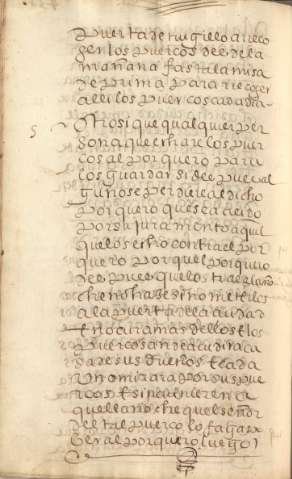 puerta de trugillo a reco
ger los puercos desde la
mañana fasta la misa
de prima para recoger
alli los puercos cada dia
5 Otrosi que qualquier per
sona que echare los puer
cos al porquero para
los guardar si despues al
guno se perdiere al dicho
porquero que sea creido
por su juramento aquel
que los echo contra el por
quero porque el porquero
despues que los trae la no
che no ha de sino meterlos
a la puerta de la ciudad
E no curar mas dellos E los
puercos andar a
casa de sus dueños E cada
uno mirara por sus puer
cos E si no el
aquella noche que el señor
del tal puerco lo faga sa
ber al porquero luego